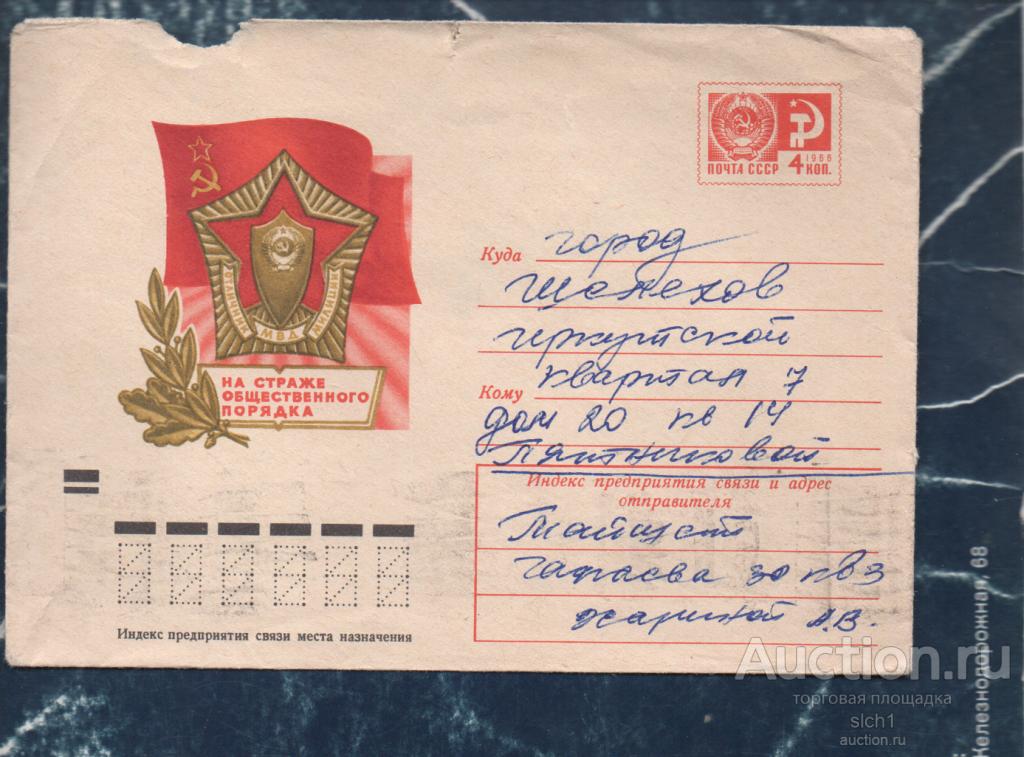 ПОЧТА СССР 4 КОП.
1966
ОТЛИЧНИК МИЛИЦИИ
МВД
НА СТРАЖЕ
ОБЩЕСТВЕННОГО
ПОРЯДКА
Куда город
Шелехов
Иркутской
квартал 7
Кому
дом 20 кв 14
Пятниковой
Индекс предприятия связи и адрес
отправителя
Тайшет
30 кв 3
А.В.
Индекс предприятия связи места назначения
Железнодорожная, 68
Auction.ru
торговая площадка
slch1
auction.ru